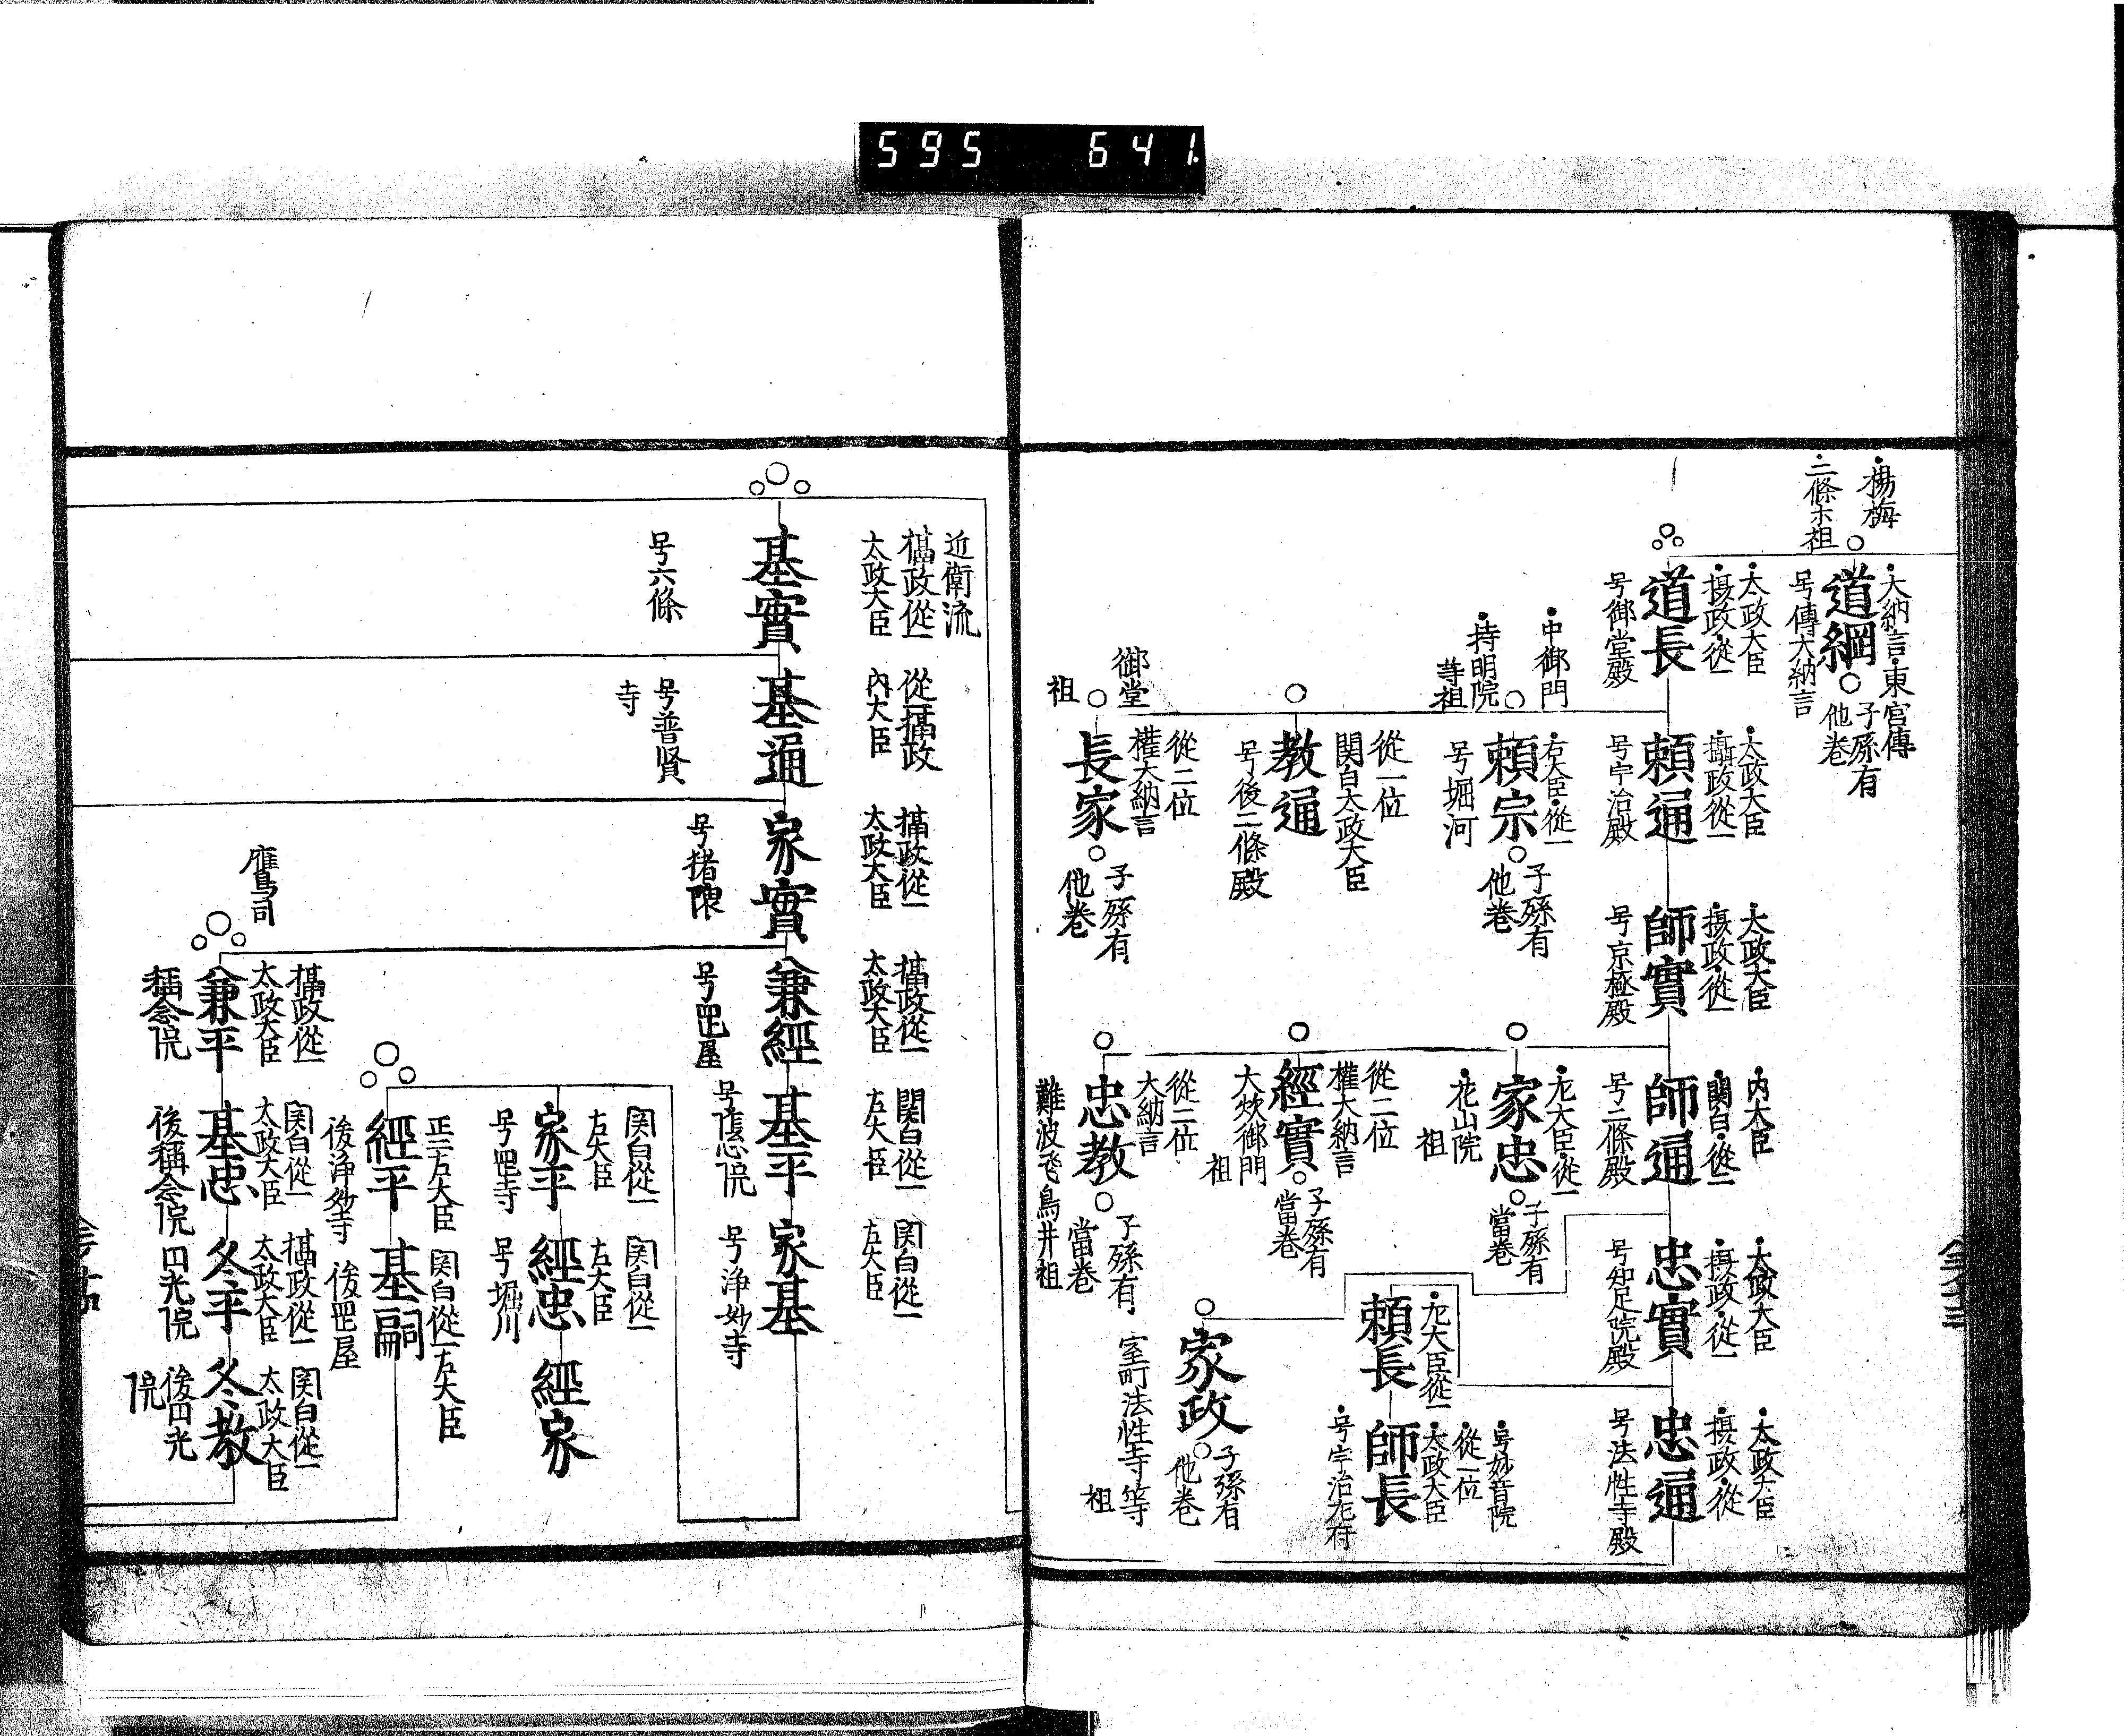 595 641.
楊梅
二條ホ祖
大納言東宮傳
道綱
号傳大納言
子孫有
他巻
太政大臣
摂政從一
道長
号御堂殿
太政大臣
攝政從一
頼通
号宇治殿
太政大臣
摂政從一
師實
号京極殿
内大臣
関白從一
師通
号二條殿
太政大臣
摂政從一
忠實
号知足院殿
太政大臣
摂政從一
忠通
号法性寺殿
中御門
持明院
等祖
右大臣從一
頼宗
号堀河
子孫有
他巻
從一位
関白太政大臣
教通
号後二條殿
御堂
祖
從二位
權大納言
長家
子孫有
他巻
左大臣從一
家忠
花山院
祖
子孫有
當巻
從二位
權大納言
經實
大炊御門
祖
子孫有
當巻
從二位
大納言
忠教
難波飛鳥井祖
子孫有
當巻
左大臣從一
頼長
号宇治左府
号妙音院
從一位
太政大臣
師長
家政
子孫有
他巻
室町法性寺等
祖
近衛流
攝政從一
太政大臣
基實
号六條
從一攝政
内大臣
基通
号普賢
寺
攝政從一
太政大臣
家實
号猪隈
攝政從一
太政大臣
兼經
号岡屋
関白從一
左大臣
基平
関白從一
左大臣
家基
号浄妙寺
関白從一
左大臣
家平
号岡寺
関白從一
左大臣
經忠
号堀川
經家
正二右大臣
經平
後浄妙寺
関白從一左大臣
基嗣
後岡屋
鷹司
攝政從一
太政大臣
兼平
稱念院
関白從一
太政大臣
基忠
後稱念院
攝政從一
太政大臣
冬平
関白從一
太政大臣
冬教